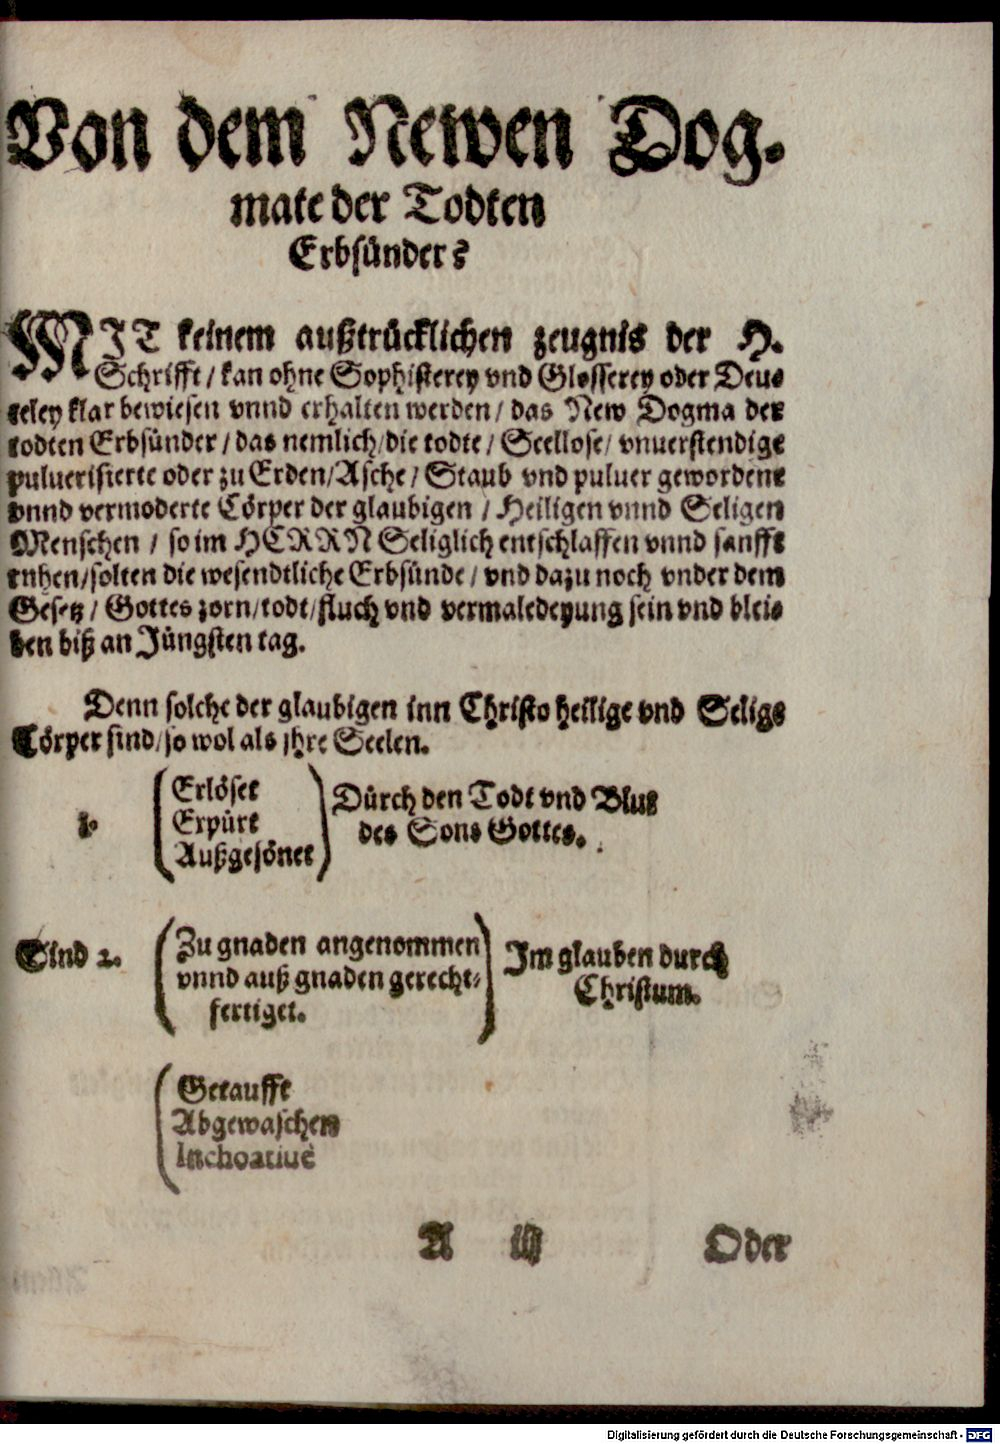 Von dem Newen Dog-
mate der Todten
Erbsünder:
MIT keinem außtrücklichen zeugnis der H.
Schrifft / kan ohne Sophisterey vnd Glosserey oder Deu-
teley klar bewiesen vnnd erhalten werden / das New Dogma der
todten Erbsünder / das nemlich / die todte / Seellose / vnuerstendige
puluerisierte oder zu Erden / Asche / Staub vnd puluer gewordene
vnnd vermoderte Cörper der glaubigen / Heiligen vnnd Seligen
Menschen / so im HERRN Seliglich entschlaffen vnnd sanfft
ruhen / solten die wesendtliche Erbsünde / vnd dazu noch vnder dem
Gesetz / Gottes zorn / todt / fluch vnd vermaledeyung sein vnd blei-
ben biß an Jüngsten tag.
Denn solche der glaubigen inn Christo heilige vnd Selige
Cörper sind / so wol als jhre Seelen.
1. Erlöset
Erpürt
Außgesönet
Dürch den Todt vnd Blut
des Sons Gottes.
Sind 2. Zu gnaden angenommen
vnnd auß gnaden gerecht-
fertiget.
Im glauben durch
Christum.
Getaufft
Abgewaschen
Inchoatiuè
A iij Oder
Digitalisierung gefördert durch die Deutsche Forschungsgemeinschaft - DFG